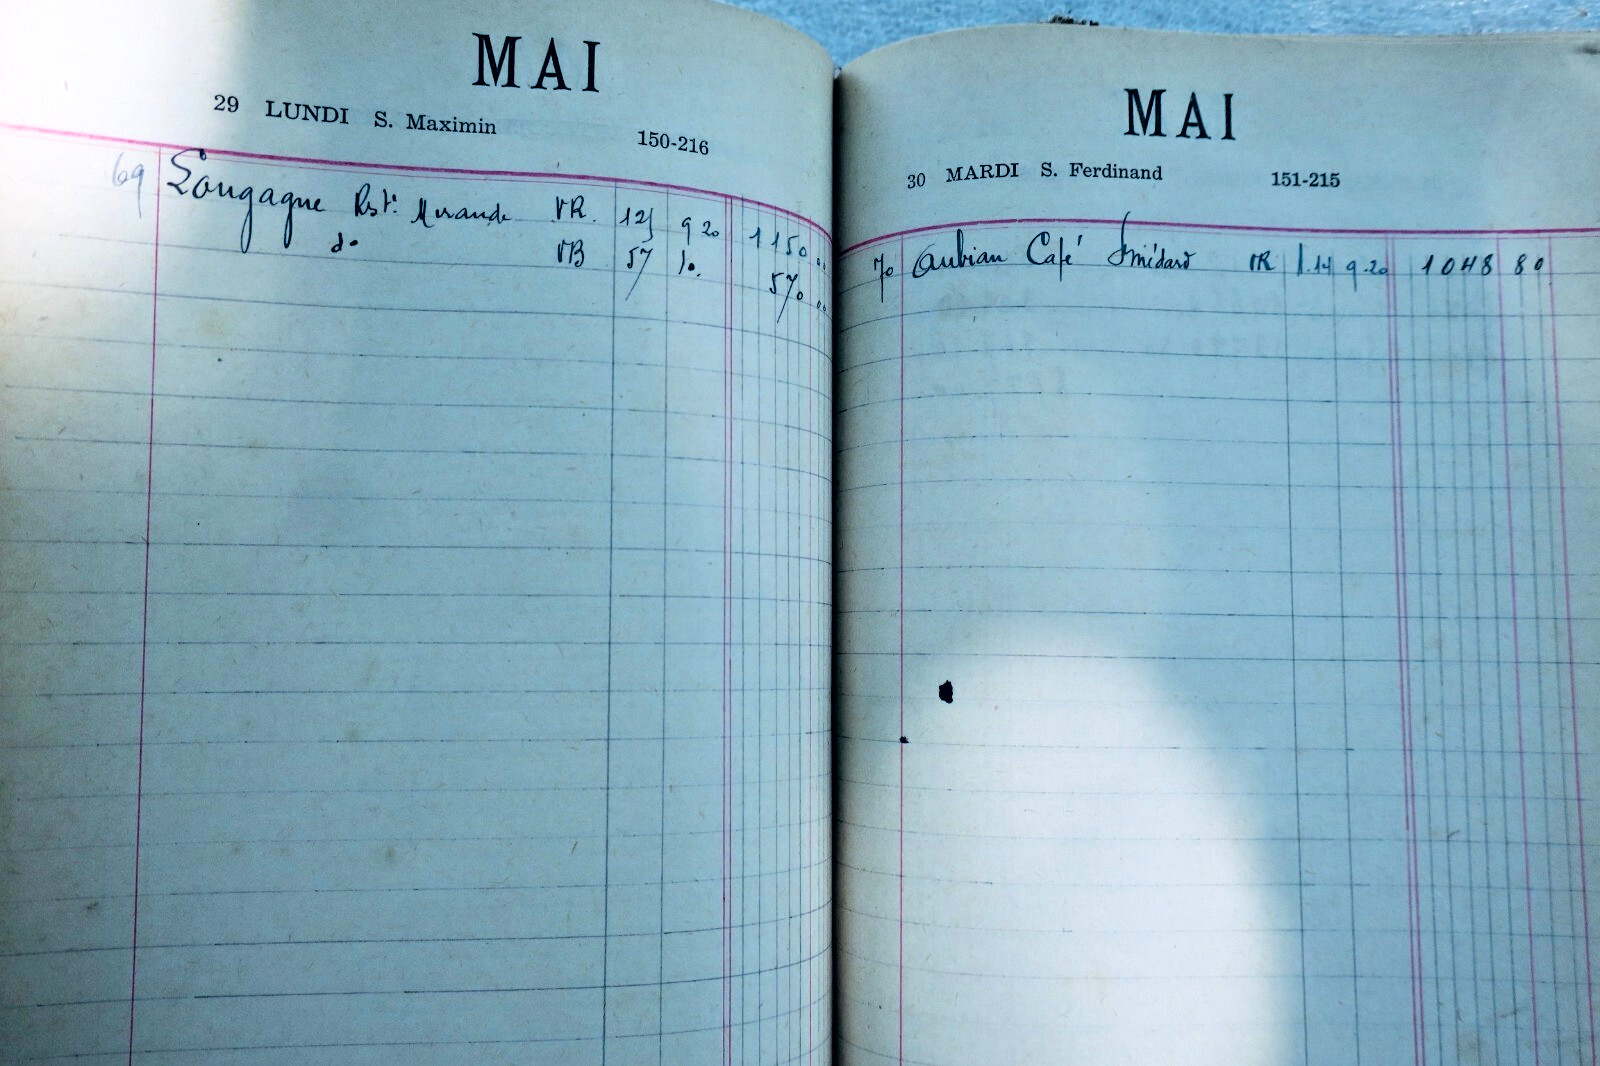 MAI
29 LUNDI S. Maximin 150-216
69 Lougagne Rest. Mirande VR. 125 9 20 1150 00
do VB 57 10. 570 00
MAI
30 MARDI S. Ferdinand 151-215
70 Aubian Café VR 114 9.20 1048 80